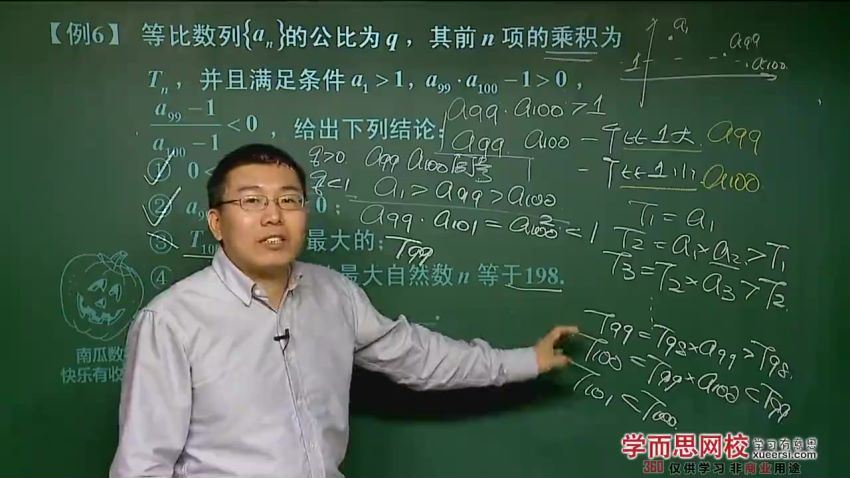 【例6】 等比数列{aₙ}的公比为 q ，其前 n 项的乘积为
Tₙ ，并且满足条件 a₁ > 1, a₉₉ · a₁₀₀ − 1 > 0 ,
(a₉₉ − 1)/(a₁₀₀ − 1) < 0 ，给出下列结论:
① 0 <
② a₉
③ T₁₀ 最大的;
④ 最大自然数 n 等于198.
南瓜数
快乐有收
a₁
a99
1
a100
a99 · a100 > 1
a99 a100 — 个比1大 a99
— 个比1小 a100
q>0 a99 a100
q<1 a₁ > a99 > a100
a99 · a101 = a100² < 1
T99
T₁ = a₁
T₂ = a₁ × a₂ > T₁
T₃ = T₂ × a₃ > T₂
⋮
T99 = T98 × a99 > T98.
T100 = T99 × a100 < T99
T101 < T100
学而思网校 学习有意思
xueersi.com
360 仅供学习 非商业用途